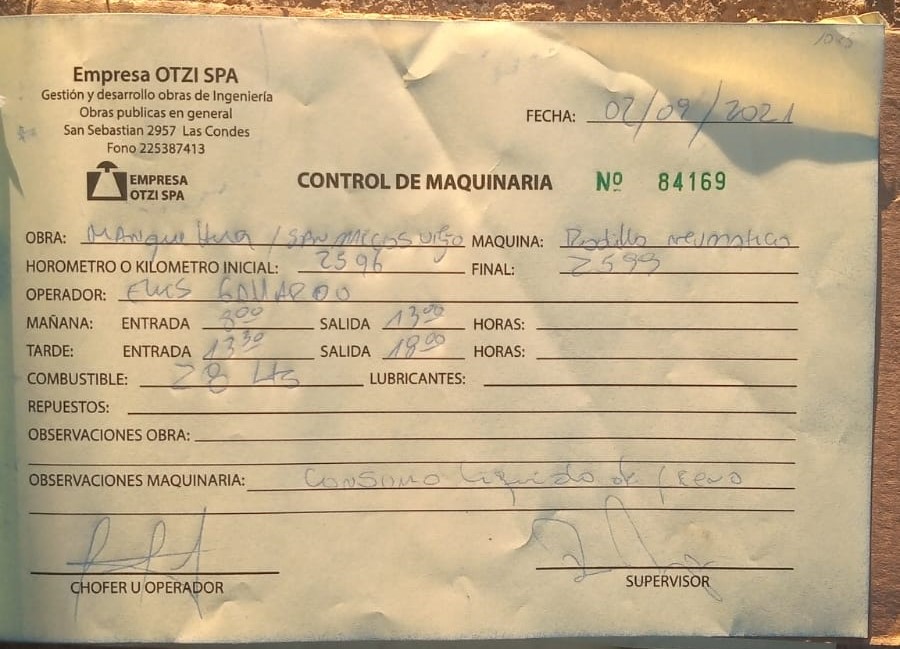 Empresa OTZI SPA
Gestión y desarrollo obras de Ingeniería
Obras publicas en general
San Sebastian 2957 Las Condes
Fono 225387413
FECHA: 02/09/2021
EMPRESA
OTZI SPA
CONTROL DE MAQUINARIA Nº 84169
OBRA: / SAN MARCOS viejo MAQUINA: Rodillo neumatico
HOROMETRO O KILOMETRO INICIAL: 2596 FINAL: 2599
OPERADOR: GALLARDO
MAÑANA: ENTRADA 8:00 SALIDA 13:00 HORAS:
TARDE: ENTRADA 13:30 SALIDA 18:00 HORAS:
COMBUSTIBLE: 28 Lts LUBRICANTES:
REPUESTOS:
OBSERVACIONES OBRA:
OBSERVACIONES MAQUINARIA: Consumo liquido de freno
CHOFER U OPERADOR SUPERVISOR